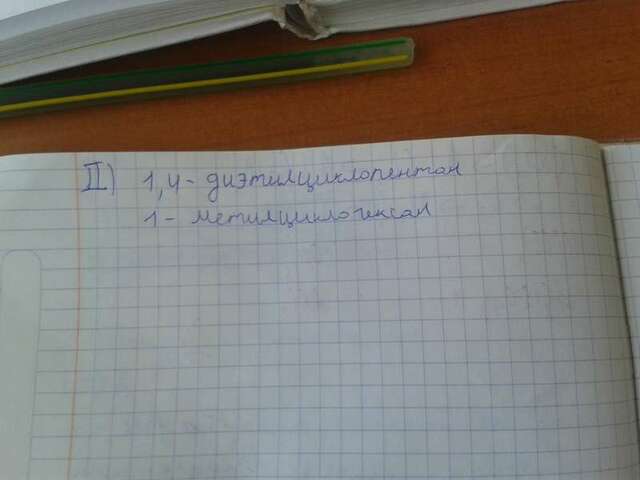 II) 1,4- диэтилциклопентан
1- метилциклогексан